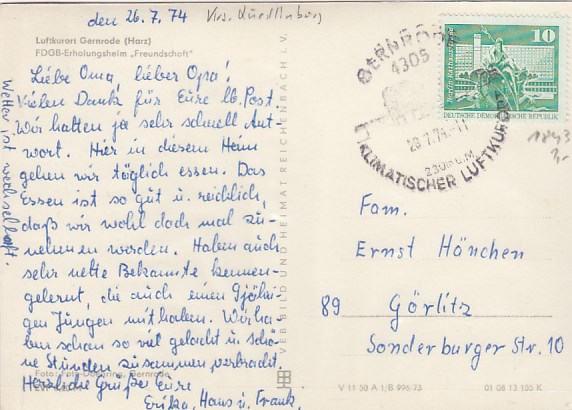 den 26.7.74 Krs. Quedlinburg
Luftkurort Gernrode (Harz)
FDGB-Erholungsheim „Freundschaft"
Liebe Oma, lieber Opa!
Vielen Dank für Eure lb. Post.
Wir hatten ja sehr schnell Ant-
wort. Hier in diesem Heim
gehen wir täglich essen. Das
Essen ist so gut u. reichlich,
daß wir wohl doch mal zu-
nehmen werden. Haben auch
sehr nette Bekannte kennen-
gelernt, die auch einen 9jähri-
gen Jungen mit haben. Wir ha-
ben schon so viel gelacht u. schö-
ne Stunden zusammen verbracht.
Herzliche Grüße Eure
Erika, Hans u. Frank.
Wetter ist wechselhaft.
Foto: Foto-Doehring, Gernrode
VEB BILD UND HEIMAT REICHENBACH I. V.
BERNRODE
4305
KLIMATISCHER LUFTKURORT
230 m ü. M.
10
DEUTSCHE DEMOKRATISCHE REPUBLIK
1843
Fam.
Ernst Hönchen
89 Görlitz
Sonderburger Str. 10
V 11 50 A 1/B 996/73
01 08 13 105 K